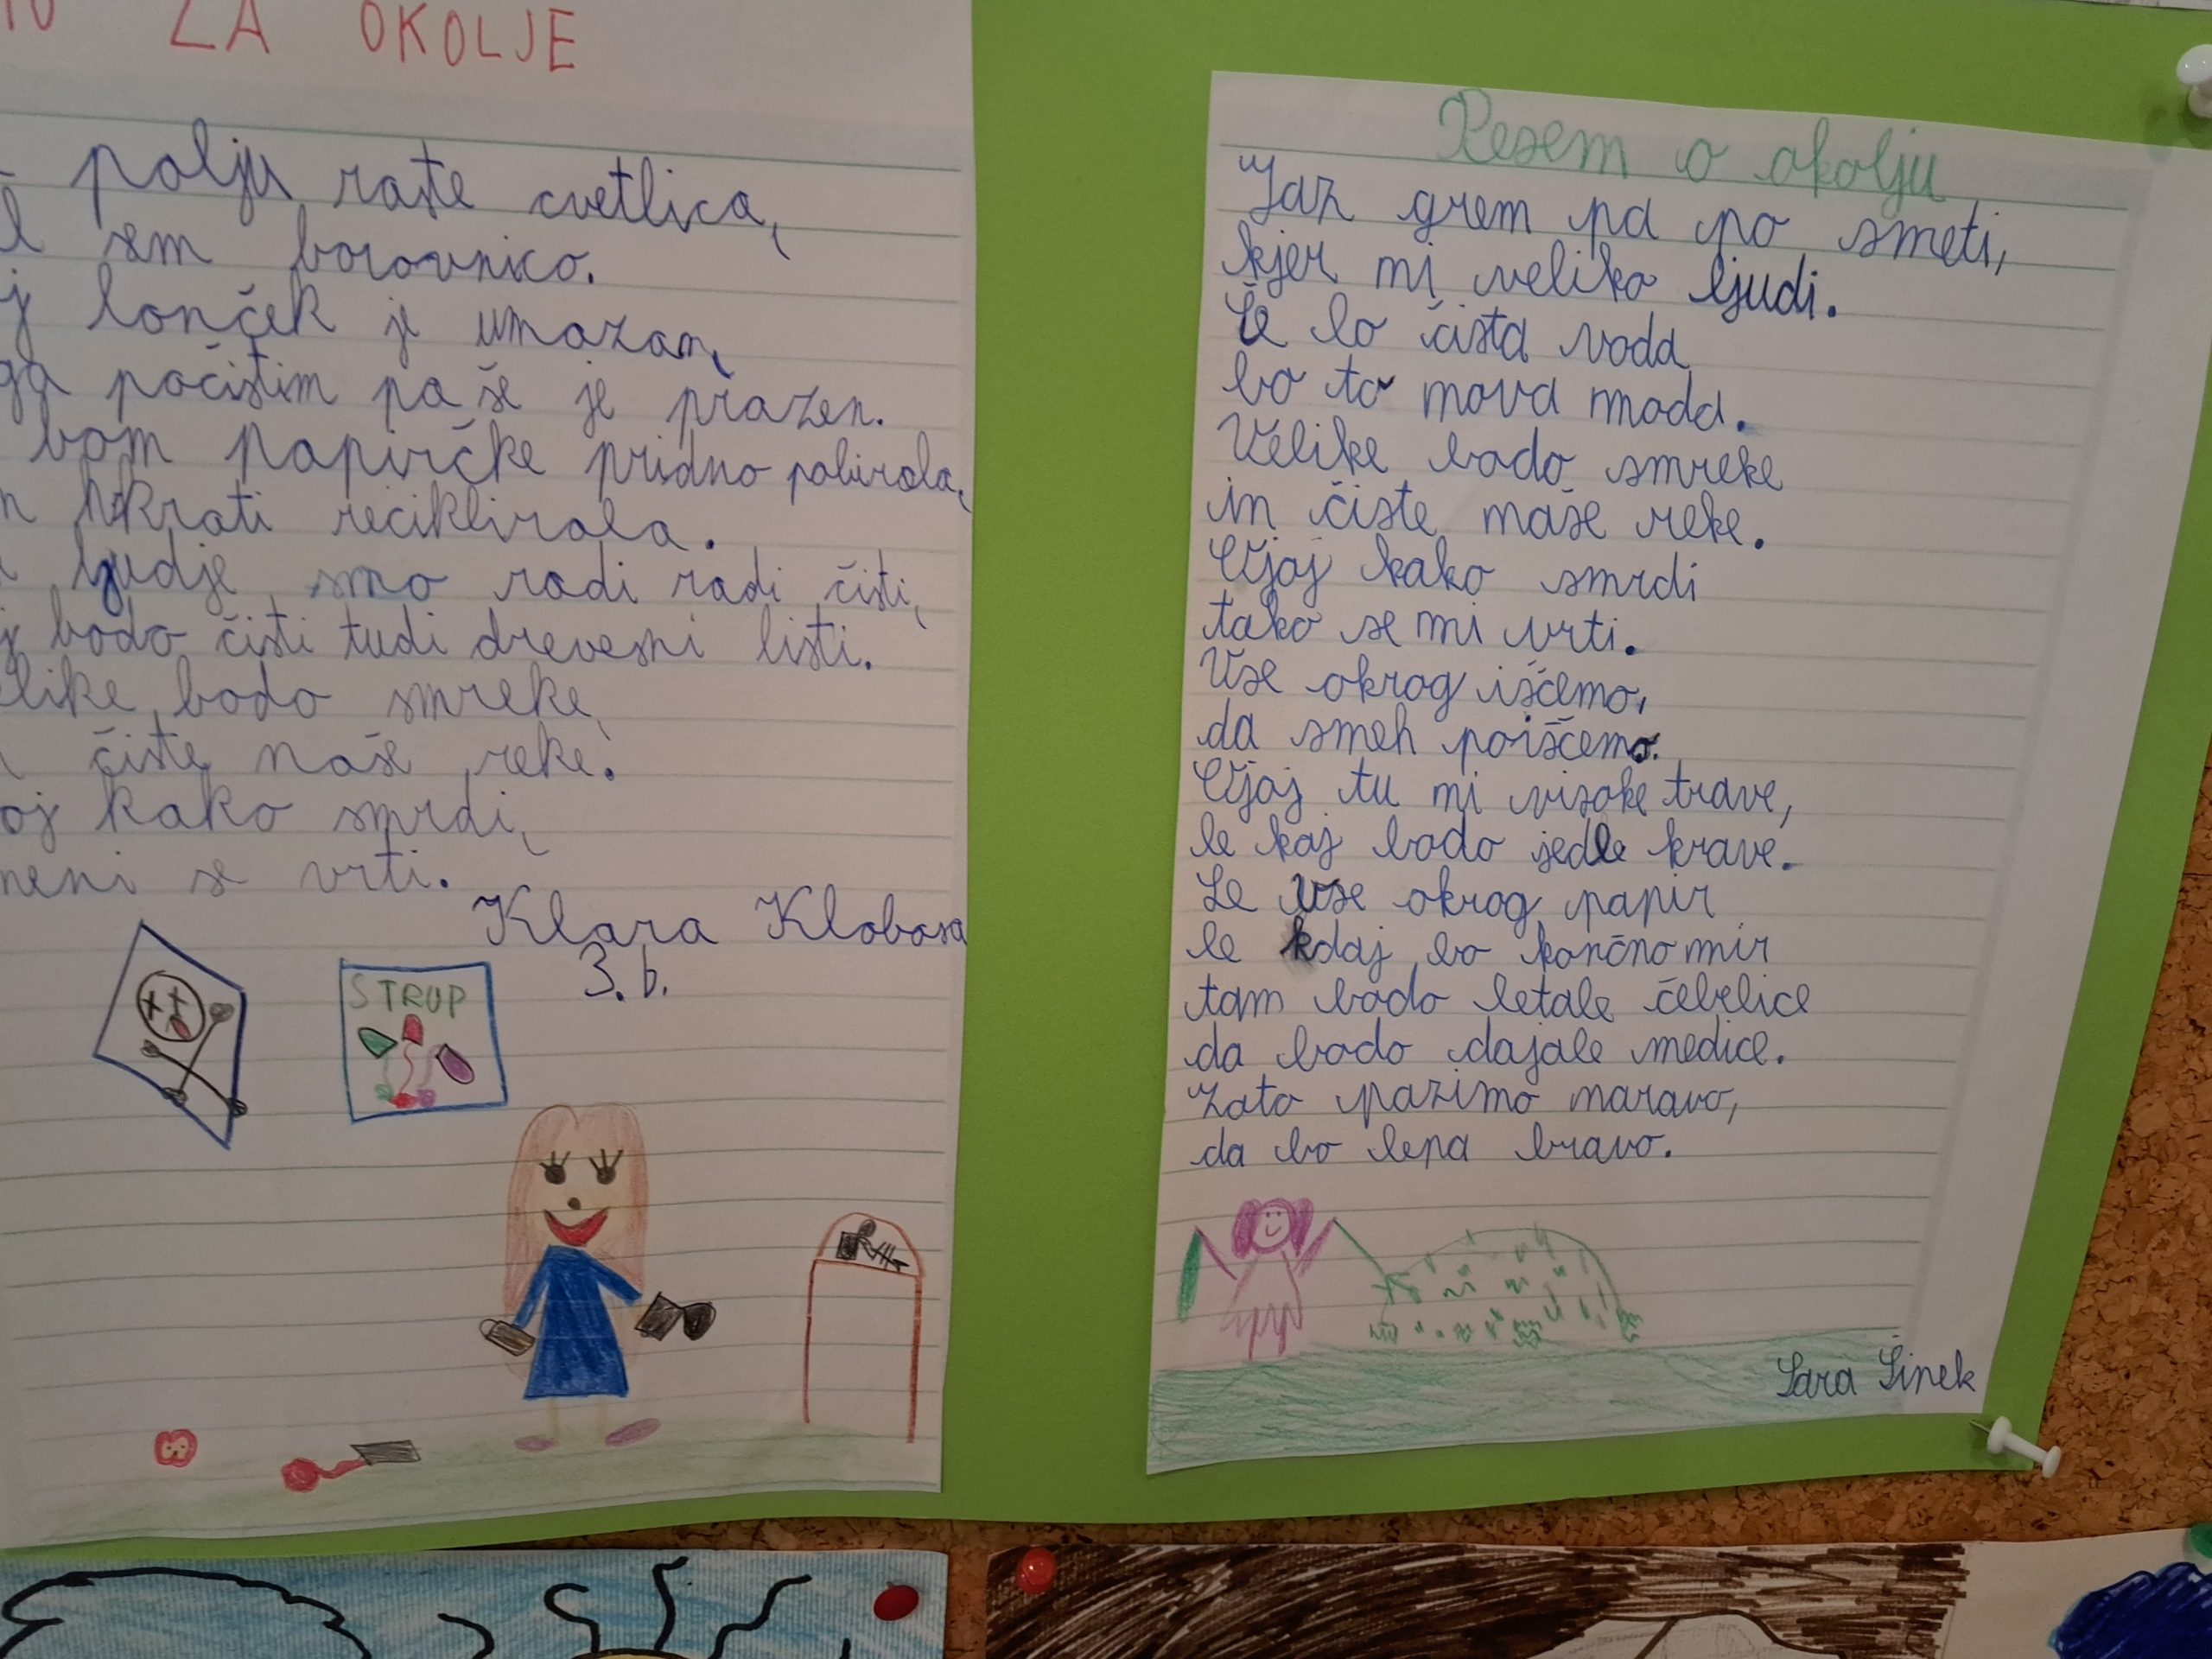 ZA OKOLJE
polju raste cvetlica,
sem borovnico.
lonček je umazan,
ga počistim pa še je prazen.
bom papirčke pridno pobirala,
hkrati reciklirala.
ljudje smo radi radi čisti,
bodo čisti tudi drevesni listi.
bodo smreke,
čiste naše reke.
kako smrdi,
meni se vrti.
Klara Klobasa
3. b.
STRUP
Pesem o okolju
Jaz grem pa po smeti,
kjer ni veliko ljudi.
Če bo čista voda
bo to nova moda.
Velike bodo smreke
in čiste naše reke.
Ojoj kako smrdi
tako se mi vrti.
Vse okrog iščemo,
da smeh poiščemo.
Ojoj tu ni visoke trave,
le kaj bodo jedle krave.
Le vse okrog papir
le kdaj bo končno mir
tam bodo letale čebelice
da bodo dajale medice.
Zato pazimo naravo,
da bo lepa bravo.
Sara Šinek